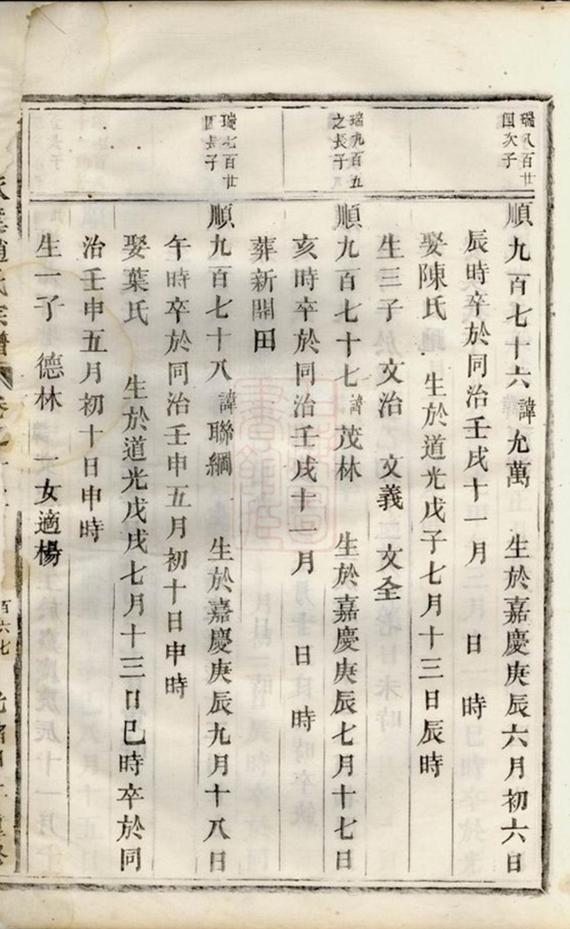 瑞八百廿
四次子
順九百七十六 諱允萬 生於嘉慶庚辰六月初六日
辰時卒於同治壬戌十一月 日 時
娶陳氏 生於道光戊子七月十三日辰時
生三子 文治 文義 文全
瑞九百五
之長子
順九百七十七 諱茂林 生於嘉慶庚辰七月十七日
亥時卒於同治壬戌十一月 日 時
葬新開田
瑞七百廿
四長子
順九百七十八 諱聯綱 生於嘉慶庚辰九月十八日
午時卒於同治壬申五月初十日申時
娶葉氏 生於道光戊戌七月十三日巳時卒於同
治壬申五月初十日申時
生一子 德林 一女適楊
趙氏宗譜
百六七